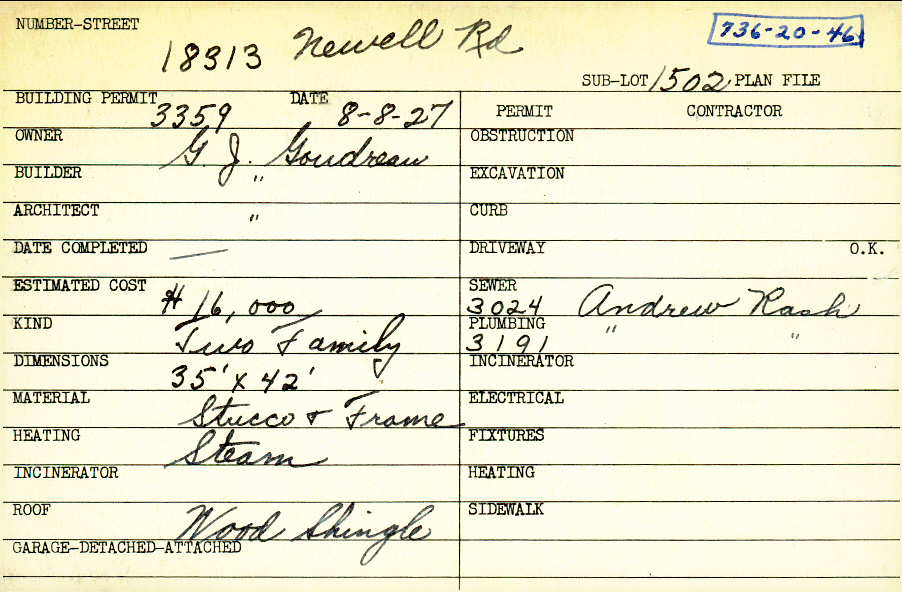 NUMBER-STREET
18313 Newell Rd
736-20-46
SUB-LOT 1502 PLAN FILE
BUILDING PERMIT 3359 DATE 8-8-27
OWNER G. J. Goudreau
BUILDER "
ARCHITECT "
DATE COMPLETED —
ESTIMATED COST $16,000
KIND Two Family
DIMENSIONS 35' x 42'
MATERIAL Stucco & Frame
HEATING Steam
INCINERATOR
ROOF Wood Shingle
GARAGE-DETACHED-ATTACHED
PERMIT CONTRACTOR
OBSTRUCTION
EXCAVATION
CURB
DRIVEWAY O.K.
SEWER
3024 Andrew Rash
PLUMBING " "
3191
INCINERATOR
ELECTRICAL
FIXTURES
HEATING
SIDEWALK